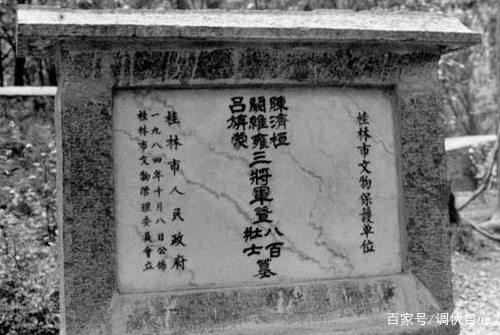 桂林市文物保護单位
陳濟桓
闞維雍三將軍暨八百壯士墓
呂旃蒙
桂林市人民政府
一九八四年十月八日公佈
桂林市文物管理委員會立
百家号/调伏自心